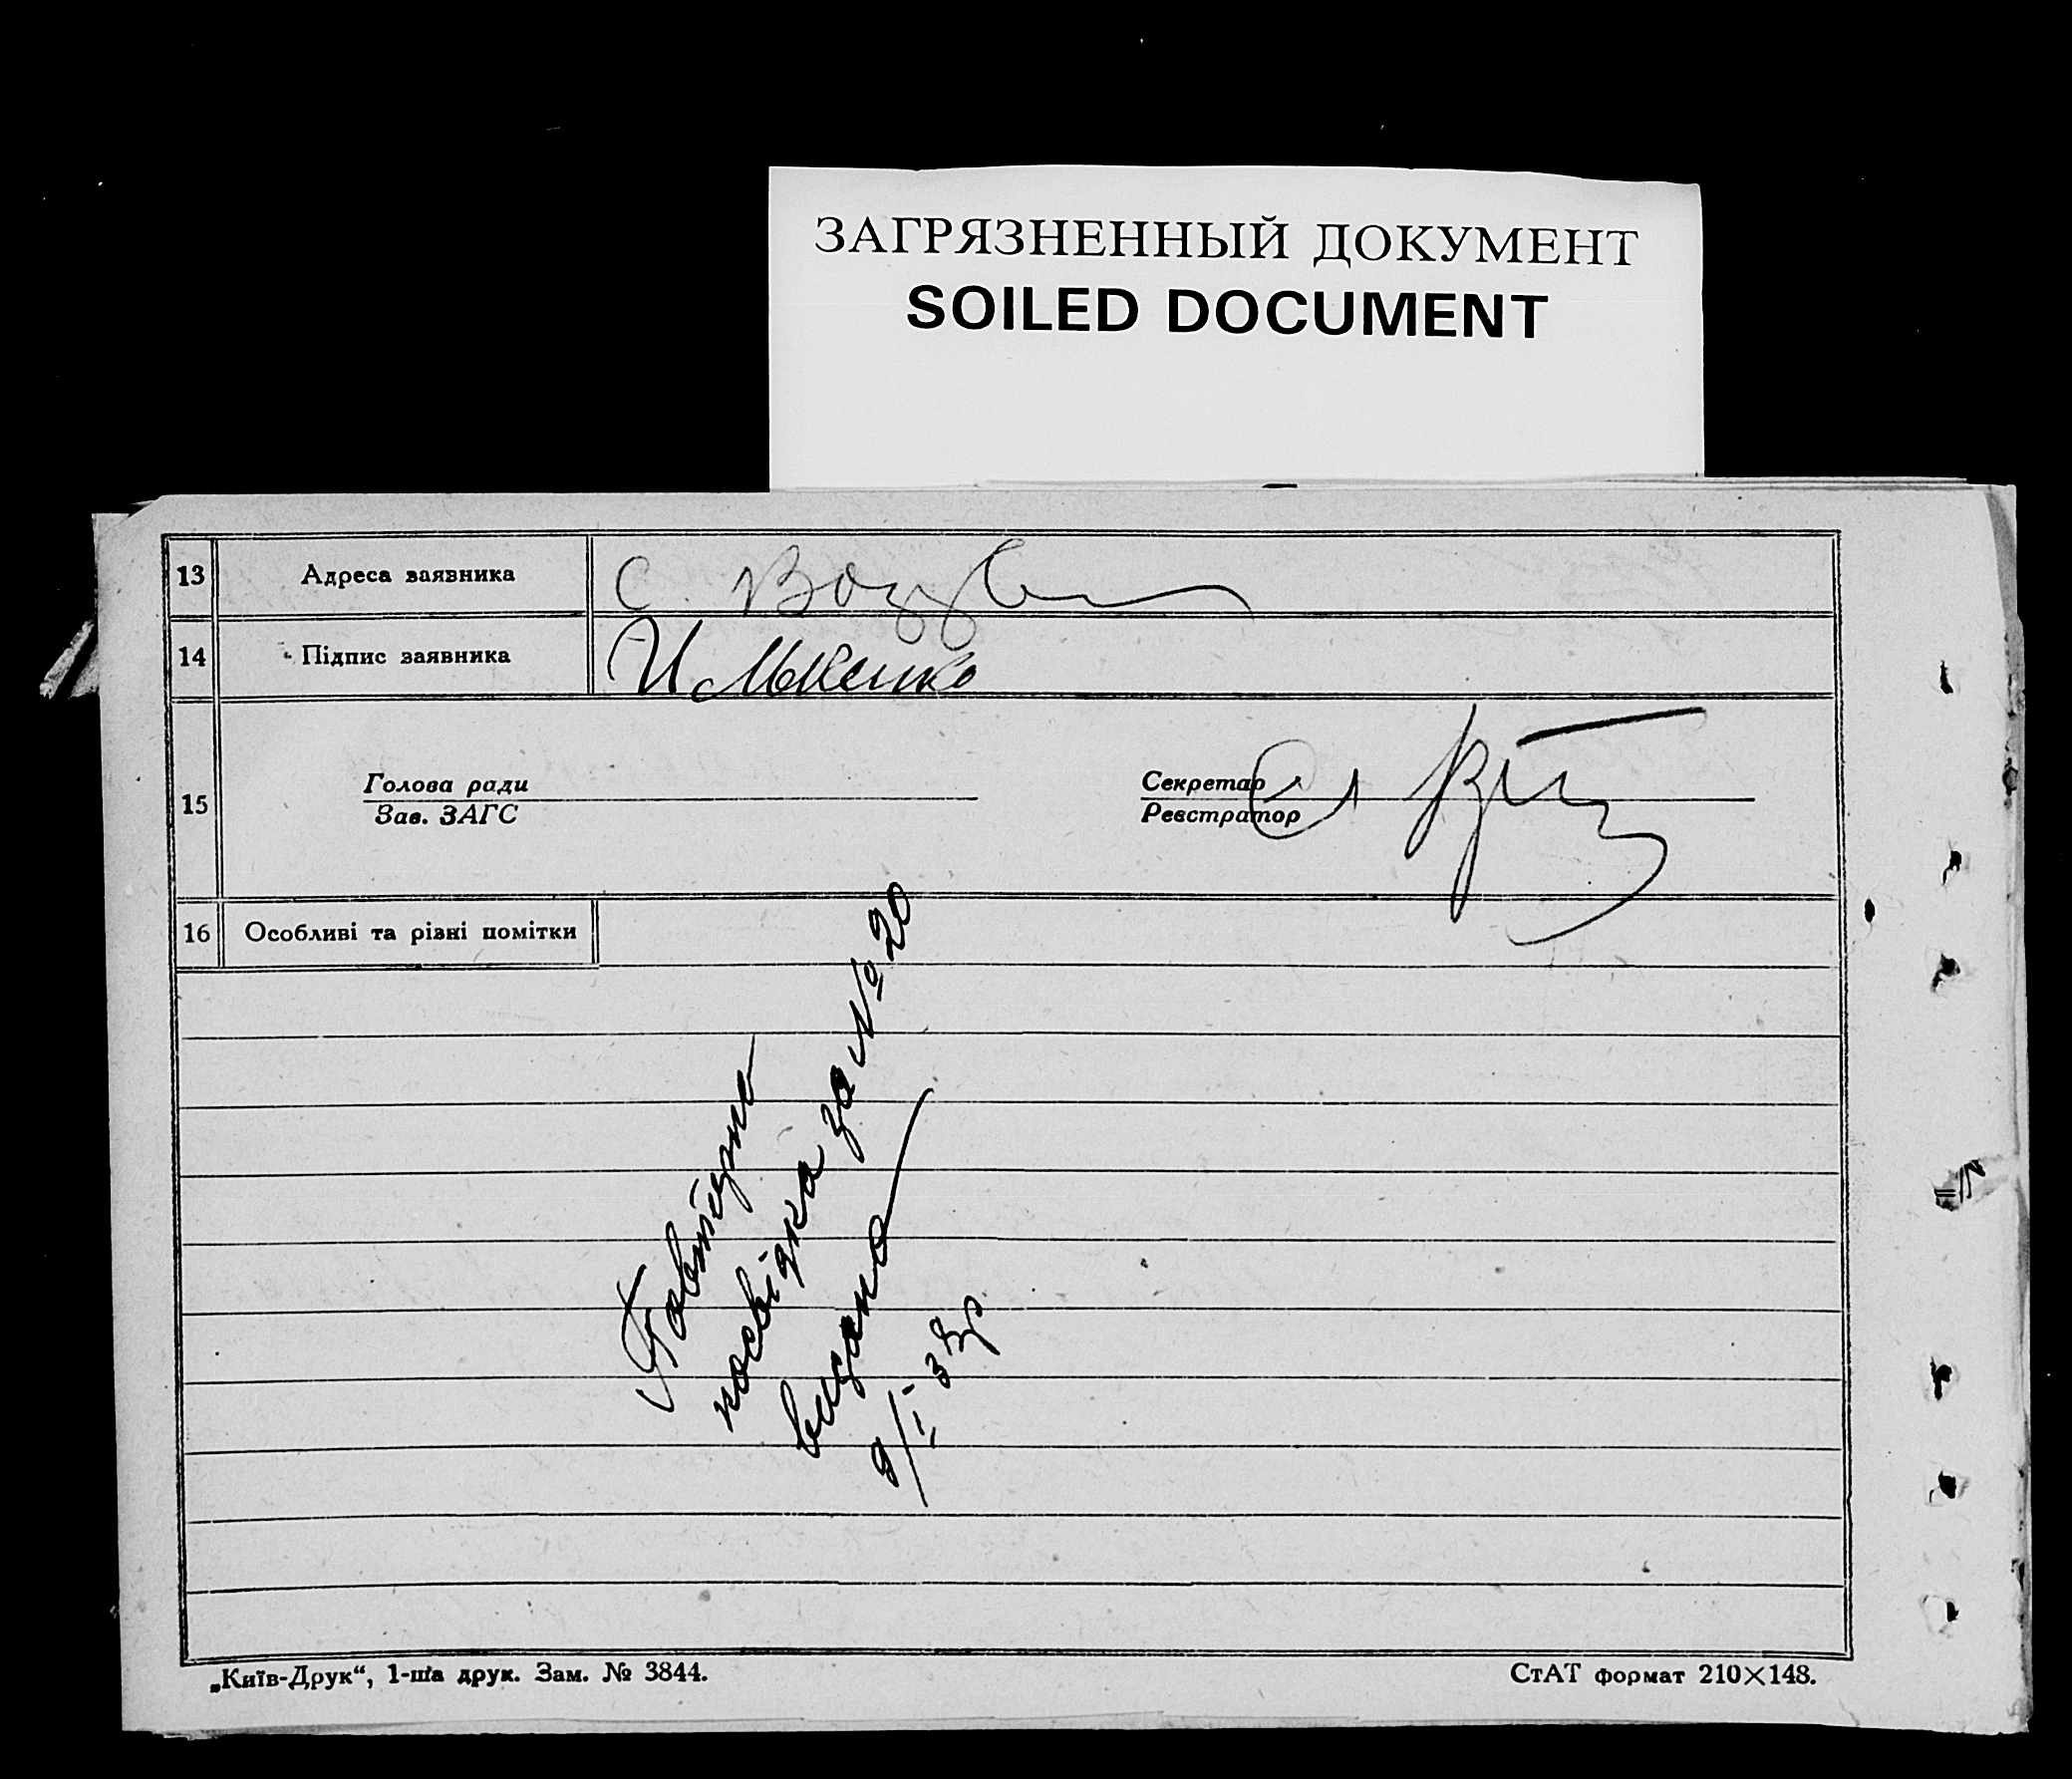 ЗАГРЯЗНЕННЫЙ ДОКУМЕНТ
SOILED DOCUMENT
13 Адреса заявника с.
14 Підпис заявника Ильченко
Голова ради Секретар
15
Зав. ЗАГС Реєстратор
16 Особливі та різні помітки
Повторно
посвідка за № 20
видана
9/I
„Київ-Друк“, 1-ша друк. Зам. № 3844. СтАТ формат 210×148.